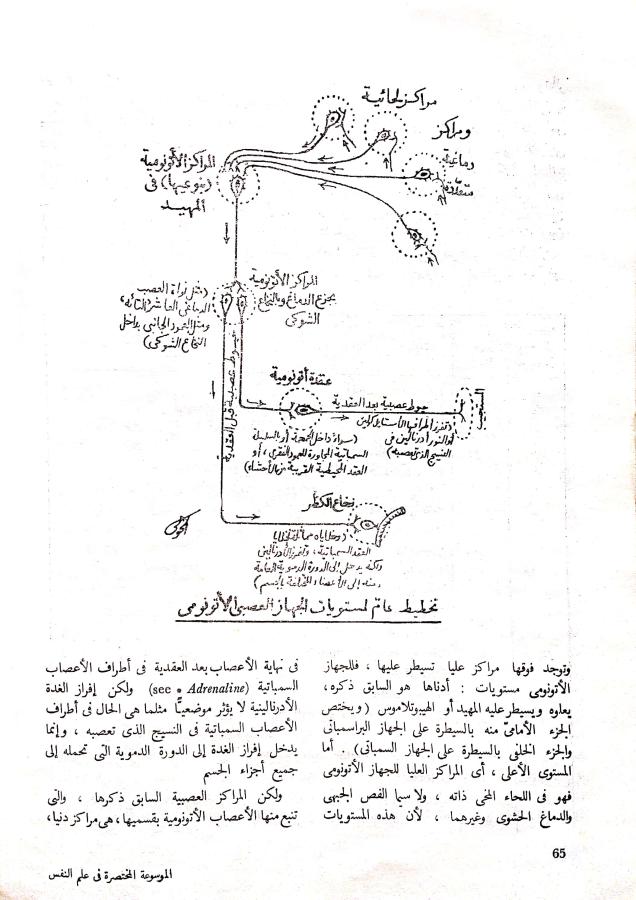 مراكز لحائية
ومراكز
دماغية
متعددة
المراكز الأتونومية
(بنوعيها) فى
المهيد
المراكز الأتونومية
بجذع الدماغ وبالنخاع
الشوكى
(مثل نواة العصب
الدماغى العاشر (التائه)،
ومثل العمود الجانبى بداخل
النخاع الشوكى)
خيوط عصبية قبل العقدية
عقدة أتونومية
(سواء داخل الجمجمة أو بالسلسلة
السمباتية المجاورة للعمود الفقرى، أو
العقد المحيطية القريبة من الأحشاء)
خيوط عصبية بعد العقدية
(تفرز أطرافها الأستايل كولين
أو النور أدرنالين فى
النسيج الذى تعصبه)
النسيج
نخاع الكظر
(وخلاياه مماثلة لخلايا
العقد السمباتية، وتفرز الأدرنالين
ولكنه يدخل إلى الدورة الدموية العامة
ومنه إلى الأعضاء المختلفة بالجسم)
تخطيط عام لمستويات الجهاز العصبى الأتونومى
وتوجد فوقها مراكز عليا تسيطر عليها ، فللجهاز
الأتونومى مستويات : أدناها هو السابق ذكره،
يعلوه ويسيطر عليه المهيد أو الهيبوتلاموس (ويختص
الجزء الأمامىّ منه بالسيطرة على الجهاز البراسمباتى
والجزء الخلفى بالسيطرة على الجهاز السمباتى) . أما
المستوى الأعلى ، أى المراكز العليا للجهاز الأتونومى
فهو فى اللحاء المخى ذاته ، ولا سيما الفص الجبهى
والدماغ الحشوى وغيرهما ، لأن هذه المستويات
فى نهاية الأعصاب بعد العقدية فى أطراف الأعصاب
السمباتية (see • Adrenaline) ولكن إفراز الغدة
الأدرنالينية لا يؤثر موضعيًا مثلما هى الحال فى أطراف
الأعصاب السمباتية فى النسيج الذى تعصبه ، وإنما
يدخل إفراز الغدة إلى الدورة الدموية التى تحمله إلى
جميع أجزاء الجسم
ولكن المراكز العصبية السابق ذكرها ، والتى
تنبع منها الأعصاب الأتونومية بقسميها، هى مراكز دنيا،
65
الموسوعة المختصرة فى علم النفس